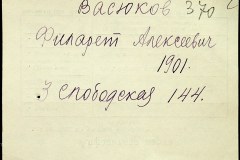 Васюков 370
Филарет Алексеевич
1901.
3 Слободская 144.